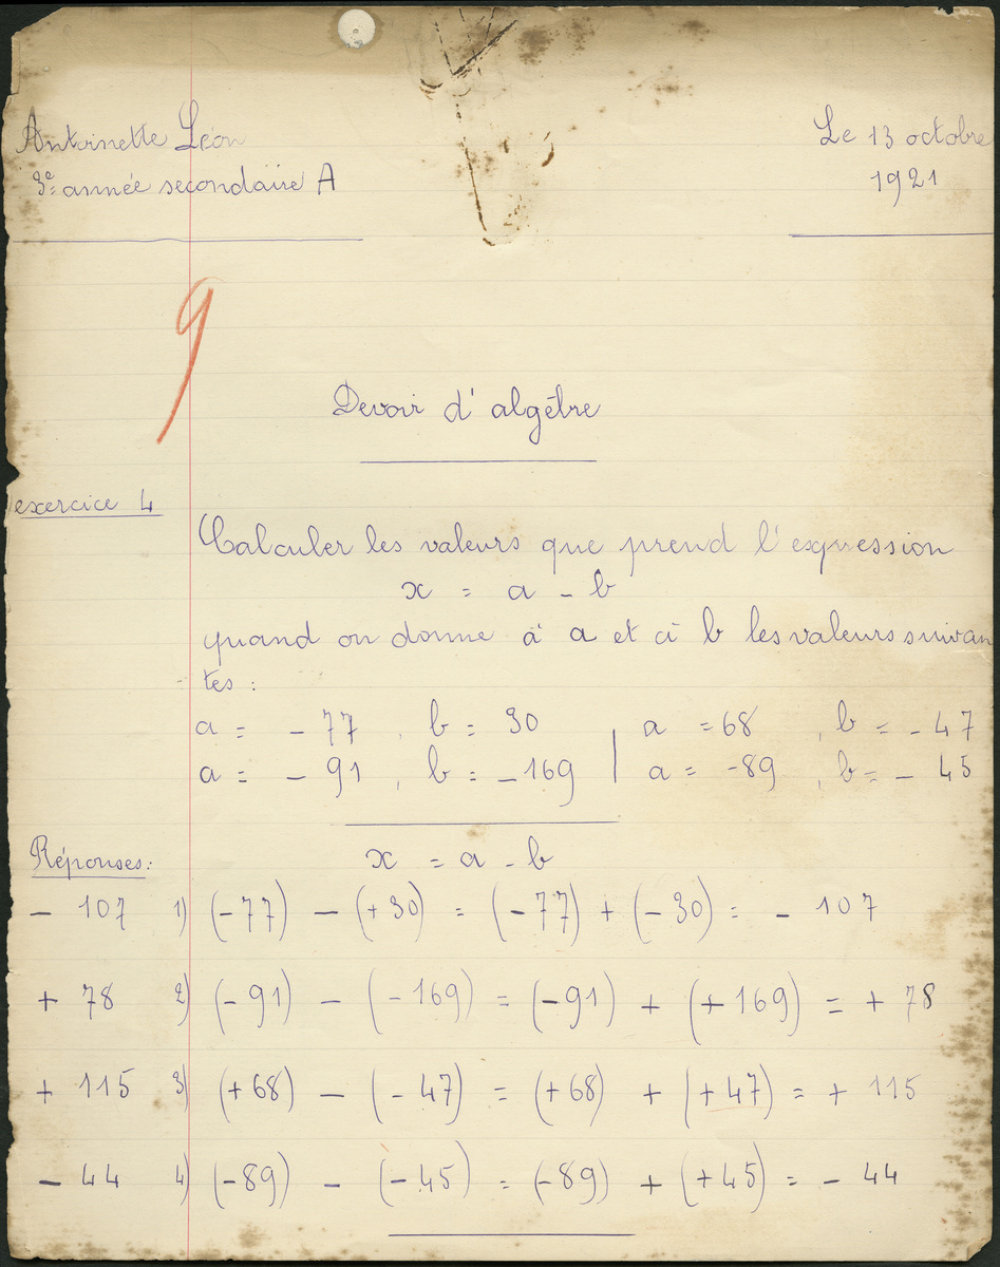 Antoinette Léon
Le 13 octobre
3e année secondaire A
1921
9
Devoir d'algèbre
exercice 4
Calculer les valeurs que prend l'expression
x = a - b
quand on donne à a et à b les valeurs suivan
tes :
a = - 77 , b = 30 | a = 68 , b = - 47
a = - 91 , b = - 169 | a = -89 , b = - 45
Réponses: x = a - b
- 107 1) (-77) - (+30) = (-77) + (-30) = - 107
+ 78 2) (-91) - (-169) = (-91) + (+169) = + 78
+ 115 3) (+68) - (-47) = (+68) + (+47) = + 115
- 44 4) (-89) - (-45) = (-89) + (+45) = - 44